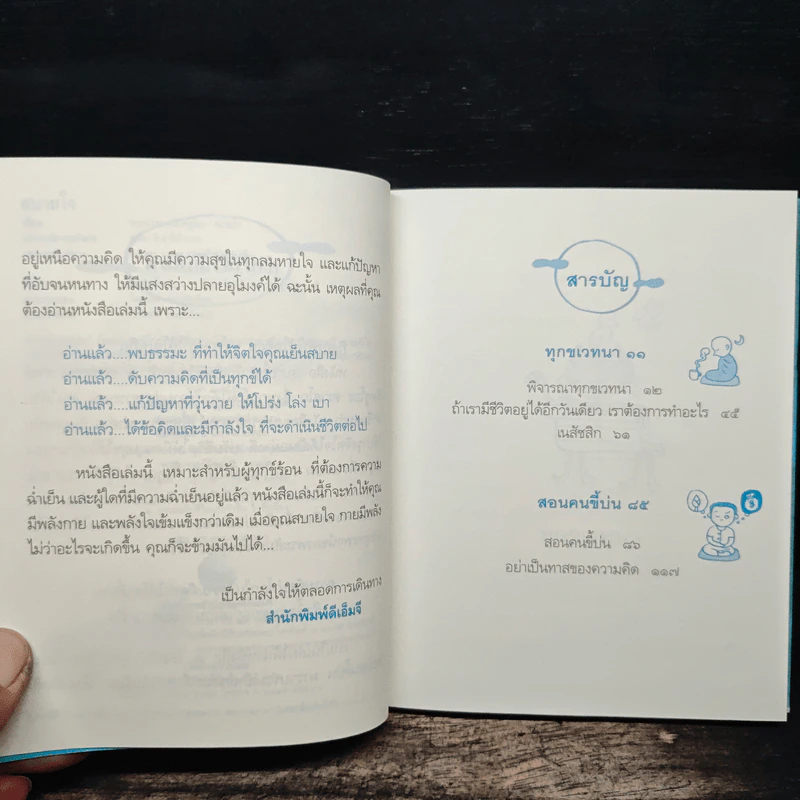 อยู่เหนือความคิด ให้คุณมีความสุขในทุกลมหายใจ และแก้ปัญหา
ที่อับจนหนทาง ให้มีแสงสว่างปลายอุโมงค์ได้ ฉะนั้น เหตุผลที่คุณ
ต้องอ่านหนังสือเล่มนี้ เพราะ...
อ่านแล้ว....พบธรรมะ ที่ทำให้จิตใจคุณเย็นสบาย
อ่านแล้ว....ดับความคิดที่เป็นทุกข์ได้
อ่านแล้ว....แก้ปัญหาที่วุ่นวาย ให้โปร่ง โล่ง เบา
อ่านแล้ว....ได้ข้อคิดและมีกำลังใจ ที่จะดำเนินชีวิตต่อไป
หนังสือเล่มนี้ เหมาะสำหรับผู้ทุกข์ร้อน ที่ต้องการความ
ฉ่ำเย็น และผู้ใดที่มีความฉ่ำเย็นอยู่แล้ว หนังสือเล่มนี้ก็จะทำให้คุณ
มีพลังกาย และพลังใจเข้มแข็งกว่าเดิม เมื่อคุณสบายใจ กายมีพลัง
ไม่ว่าอะไรจะเกิดขึ้น คุณก็จะข้ามมันไปได้...
เป็นกำลังใจให้ตลอดการเดินทาง
สำนักพิมพ์ดีเอ็มจี
สารบัญ
ทุกขเวทนา ๑๑
พิจารณาทุกขเวทนา ๑๒
ถ้าเรามีชีวิตอยู่ได้อีกวันเดียว เราต้องการทำอะไร ๔๕
เนสัชชิก ๖๑
สอนคนขี้บ่น ๘๕
สอนคนขี้บ่น ๘๖
อย่าเป็นทาสของความคิด ๑๑๗